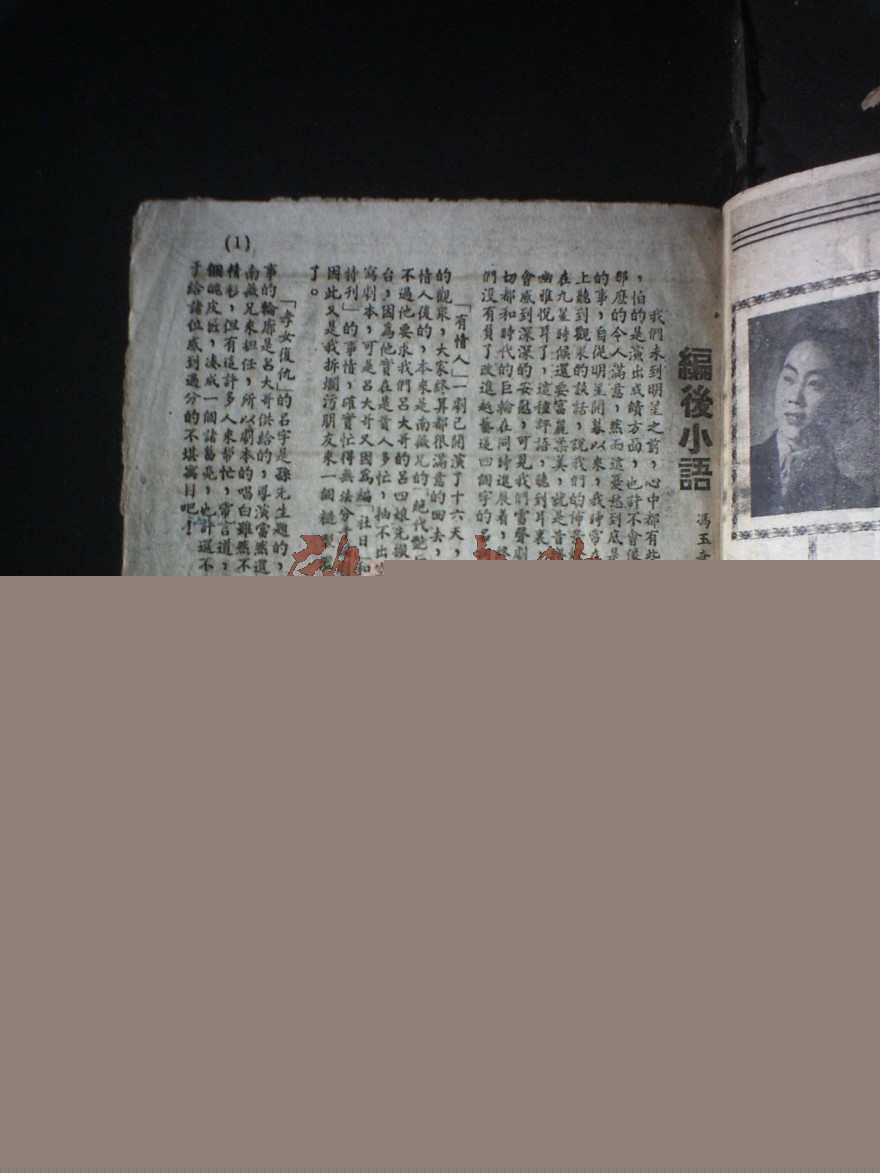 編後小語
馮玉
我們未到明星之前，心中都有些
，怕的是演出成績方面，也許不會像
那麽的令人滿意，然而這憂愁到底是
的事，自從明星開幕以來，我時常在
上聽到觀衆的談話，說我們的佈景
在九星時候還要富麗柔美，就是音
幽雅悅耳了，這種評語，聽到耳裏
會感到深深的安慰，可見我們雷聲劇
切都和時代的巨輪在同時進展着，終
們沒有負了改進越藝這四個字的名
「有情人」一劇已開演了十六天，
的觀衆，大家終算都很滿意的回去，
情人後的，本來是南薇兄的「絕代艷
不過他要求我們呂大哥的呂四娘先搬
台，因為他實在是貴人多忙，抽不出
寫劇本，可是呂大哥又因為編「社日
特刊」的事情，確實忙得無法分
因此又是我拆爛污朋友來一個
了。
「孝女復仇」的名字是孫先生題的，
事的輪廓是呂大哥供給的，導演當然還
南薇兄來担任，所以劇本的唱白雖然不
精彩，但有這許多人來帮忙，常言道，
個皮匠，凑成一個諸葛亮，也許還不
于給諸位感到過分的不堪寓目吧！
(1)